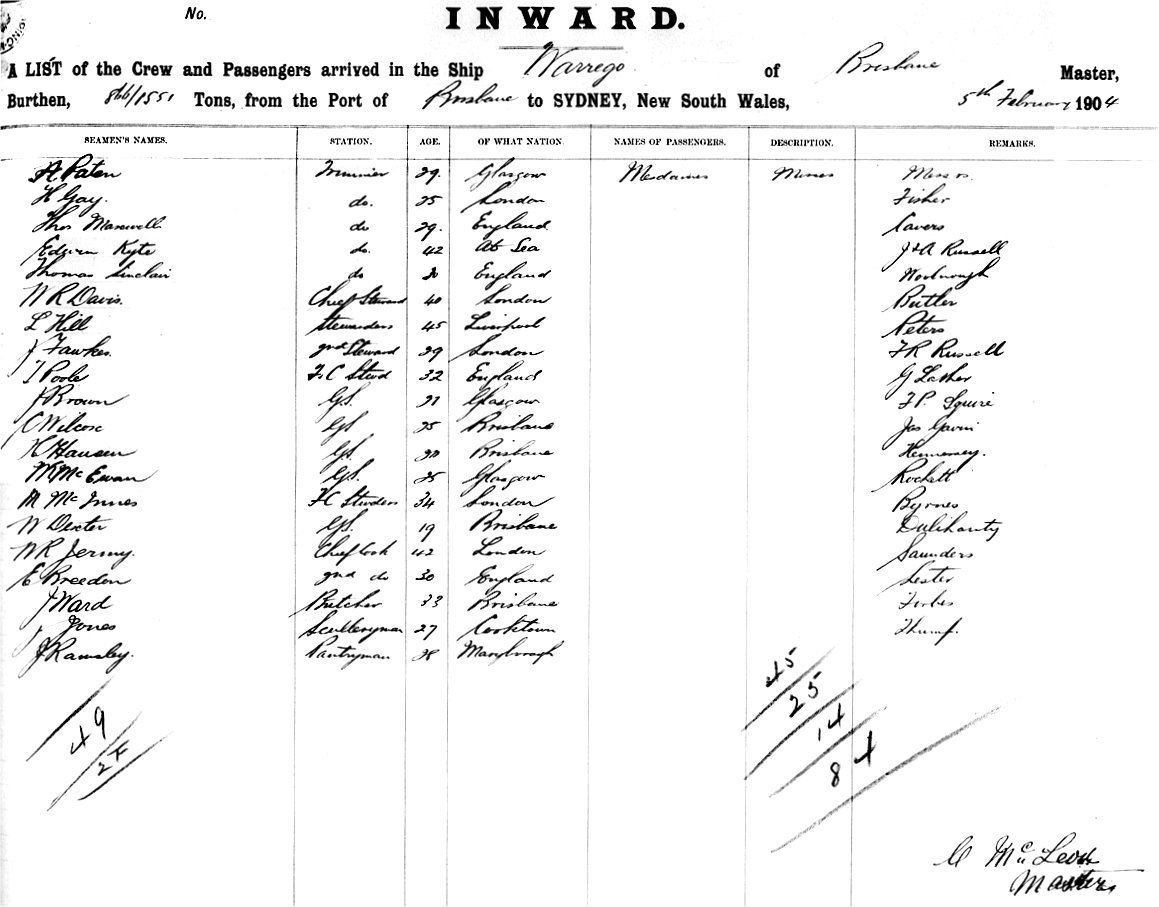 No.
INWARD.
A LIST of the Crew and Passengers arrived in the Ship Warrego of Brisbane Master,
Burthen, 866/1551 Tons, from the Port of Brisbane to SYDNEY, New South Wales, 5th February 1904
SEAMEN'S NAMES. STATION. AGE. OF WHAT NATION. NAMES OF PASSENGERS. DESCRIPTION. REMARKS.
A Paten Trimmer 29 Glasgow Mesdames Misses Messrs.
H Gay. do. 25 London Fisher
Thos Maxwell do 29. England Cavers
Edwin Kyte do. 42 At Sea J & A Russell
Thomas Sinclair do 30 England
W R Davis. Chief Steward 40 London Butler
L Hill Stewardess 45 Liverpool Peters
J Fawkes. 2nd Steward 29 London F R Russell
T Poole F.C Stewd 32 England G Lasker
J Brown G.S. 21 Glasgow F P. Squire
C Wilcox GS 25 Brisbane Jas Gavin
H Hansen G.S. 20 Brisbane Hennessey.
W McEwan G.S. 25 Glasgow Rockett
M McInnes F.C Stwdess 34 London Byrnes
W Dexter G.S. 19 Brisbane Dalihanty
W R Jermy. Chief Cook 42 London Saunders
E Breeden 2nd do 30 England Lester
J Ward Butcher 33 Brisbane Forbes
J Jones Sculleryman 27 Cooktown Thump.
J Ramsley. Pantryman 28 Maryborough
49
24
45
25
14
84
McLeod
Master